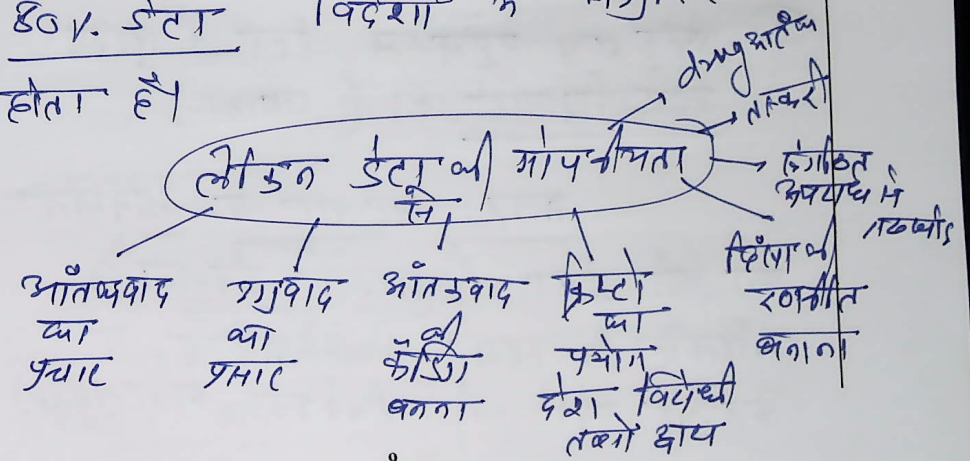 80%. डेटा विदेशों के
होता है।
लेकिन डेटा की गोपनीयता
से
drug आतंक
तस्करी
संगठित
अपराध में
गठजोड़
हिंसा की
रणनीति
बनाना
आँतकवाद
का
प्रचार
का
प्रसार
आँतकवाद
की
फंडिंग
बनना
क्रिप्टो
का
प्रयोग
देश विरोधी
तत्वों द्वारा